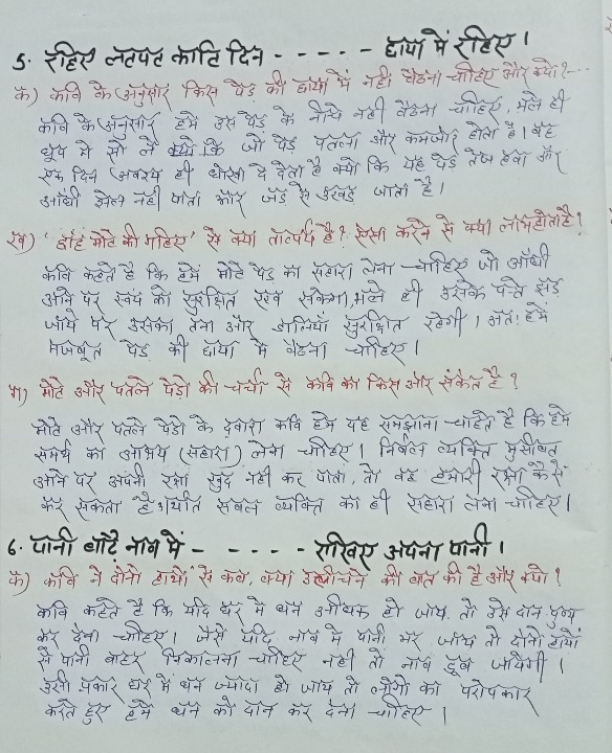 5. रहिए लटपट काटि दिन - - - - - छाया में रहिए।
क) कवि के अनुसार किस पेड़ की छाया में नही बैठना चाहिए और क्यों?--
कवि के अनुसार हमें उस पेड़ के नीचे नही बैठना चाहिए, भले ही
धूप मे सो ले क्यो कि जो पेड़ पतला और कमजोर होता है। वह
एक दिन अवश्य ही धोखा दे देता है क्यों कि यह पेड़ तेज हवा और
आँधी झेल नही पाता और जड़ से उखड़ जाता है।
ख) 'डाहं मोटे की गहिए' से क्या तात्पर्य है? ऐसा करने से क्या लाभ होता है?
कवि कहते है कि हमें मोटे पेड़ का सहारा लेना चाहिए जो आँधी
आने पर स्वयं को सुरक्षित रख सकेगा, भले ही उसके पत्ते झड़
जाये पर उसका तना और डालियाँ सुरक्षित रहेगी। अतः हमें
मजबूत पेड़ की छाया में बैठना चाहिए।
ग) मोटे और पतले पेड़ो की चर्चा से कवि का किस ओर संकेत है?
मोटे और पतले पेडो के द्वारा कवि हमे यह समझाना चाहते है कि हमे
समर्थ का आश्रय (सहारा) लेना चाहिए। निर्बल व्यक्ति मुसीबत
आने पर अपनी रक्षा खुद नही कर पाता, तो वह हमारी रक्षा कैसे
कर सकता है अर्थात सबल व्यक्ति का ही सहारा लेना चाहिए।
6. पानी बाढै नाव में - - - - - राखिए अपना पानी।
क) कवि ने दोनो हाथों से कब, क्या उलीचने की बात की है और क्यो?
कवि कहते है कि यदि घर में धन अधिक हो जाय तो उसे दान पुण्य
कर देना चाहिए। जैसे यदि नाव मे पानी भर जाय तो दोनो हाथों
से पानी बाहर निकालना चाहिए नहीं तो नाव डूब जायेगी।
उसी प्रकार घर में धन ज्यादा हो जाय तो लोगो का परोपकार
करते हुए हमे धन को दान कर देना चाहिए।